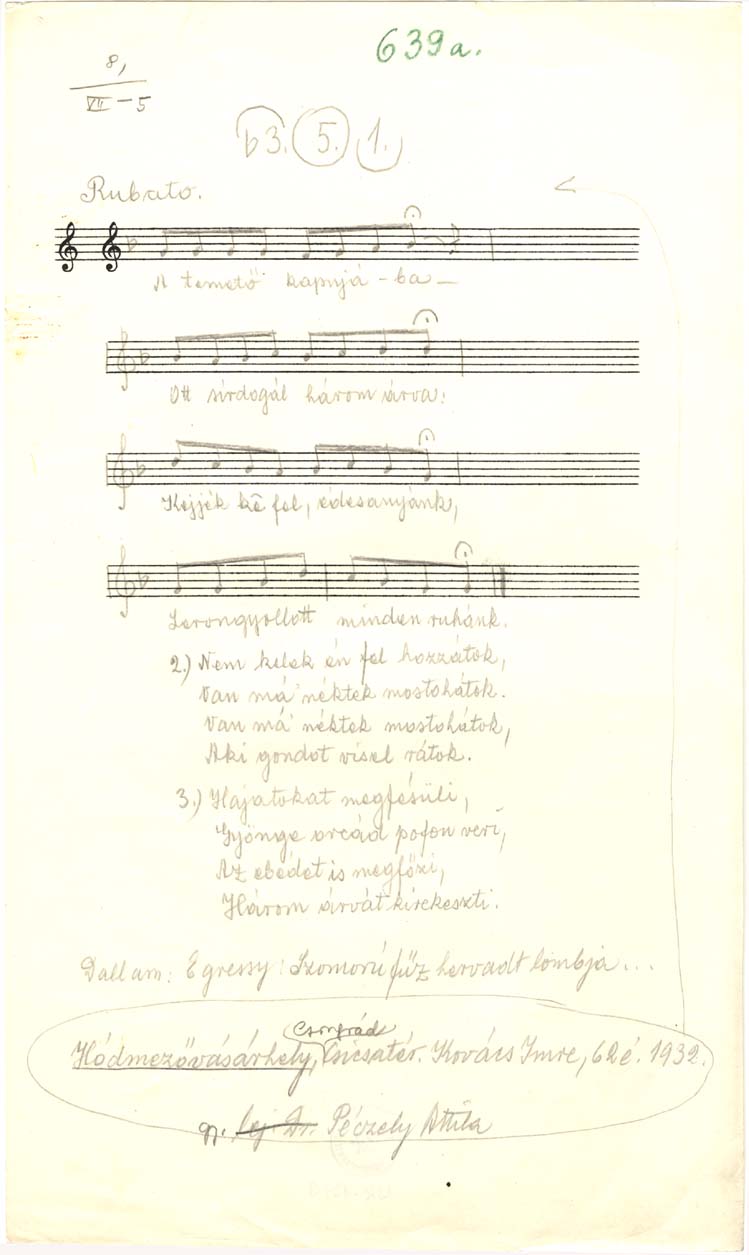 639a.
8,
VII-5
b3. 5. 1.
Rubato.
A temető kapujá - ba -
Ott sírdogál három árva:
Kejjék kē fel, édesanyánk,
Lerongyollott minden ruhánk.
2.) Nem kelek én fel hozzátok,
Van má' néktek mostohátok.
Van má' néktek mostohátok,
Aki gondot visel rátok.
3.) Hajatokat megfésüli,
Gyönge orcád pofon veri,
Az ebédet is megfőzi,
Három árvát kirekeszti.
Dallam: Egressy: Szomorú fűz hervadt lombja...
Csongrád
Hódmezővásárhely, Csicsatér. Kovács Imre, 62 é. 1932.
gy. lej Dr. Péczely Attila